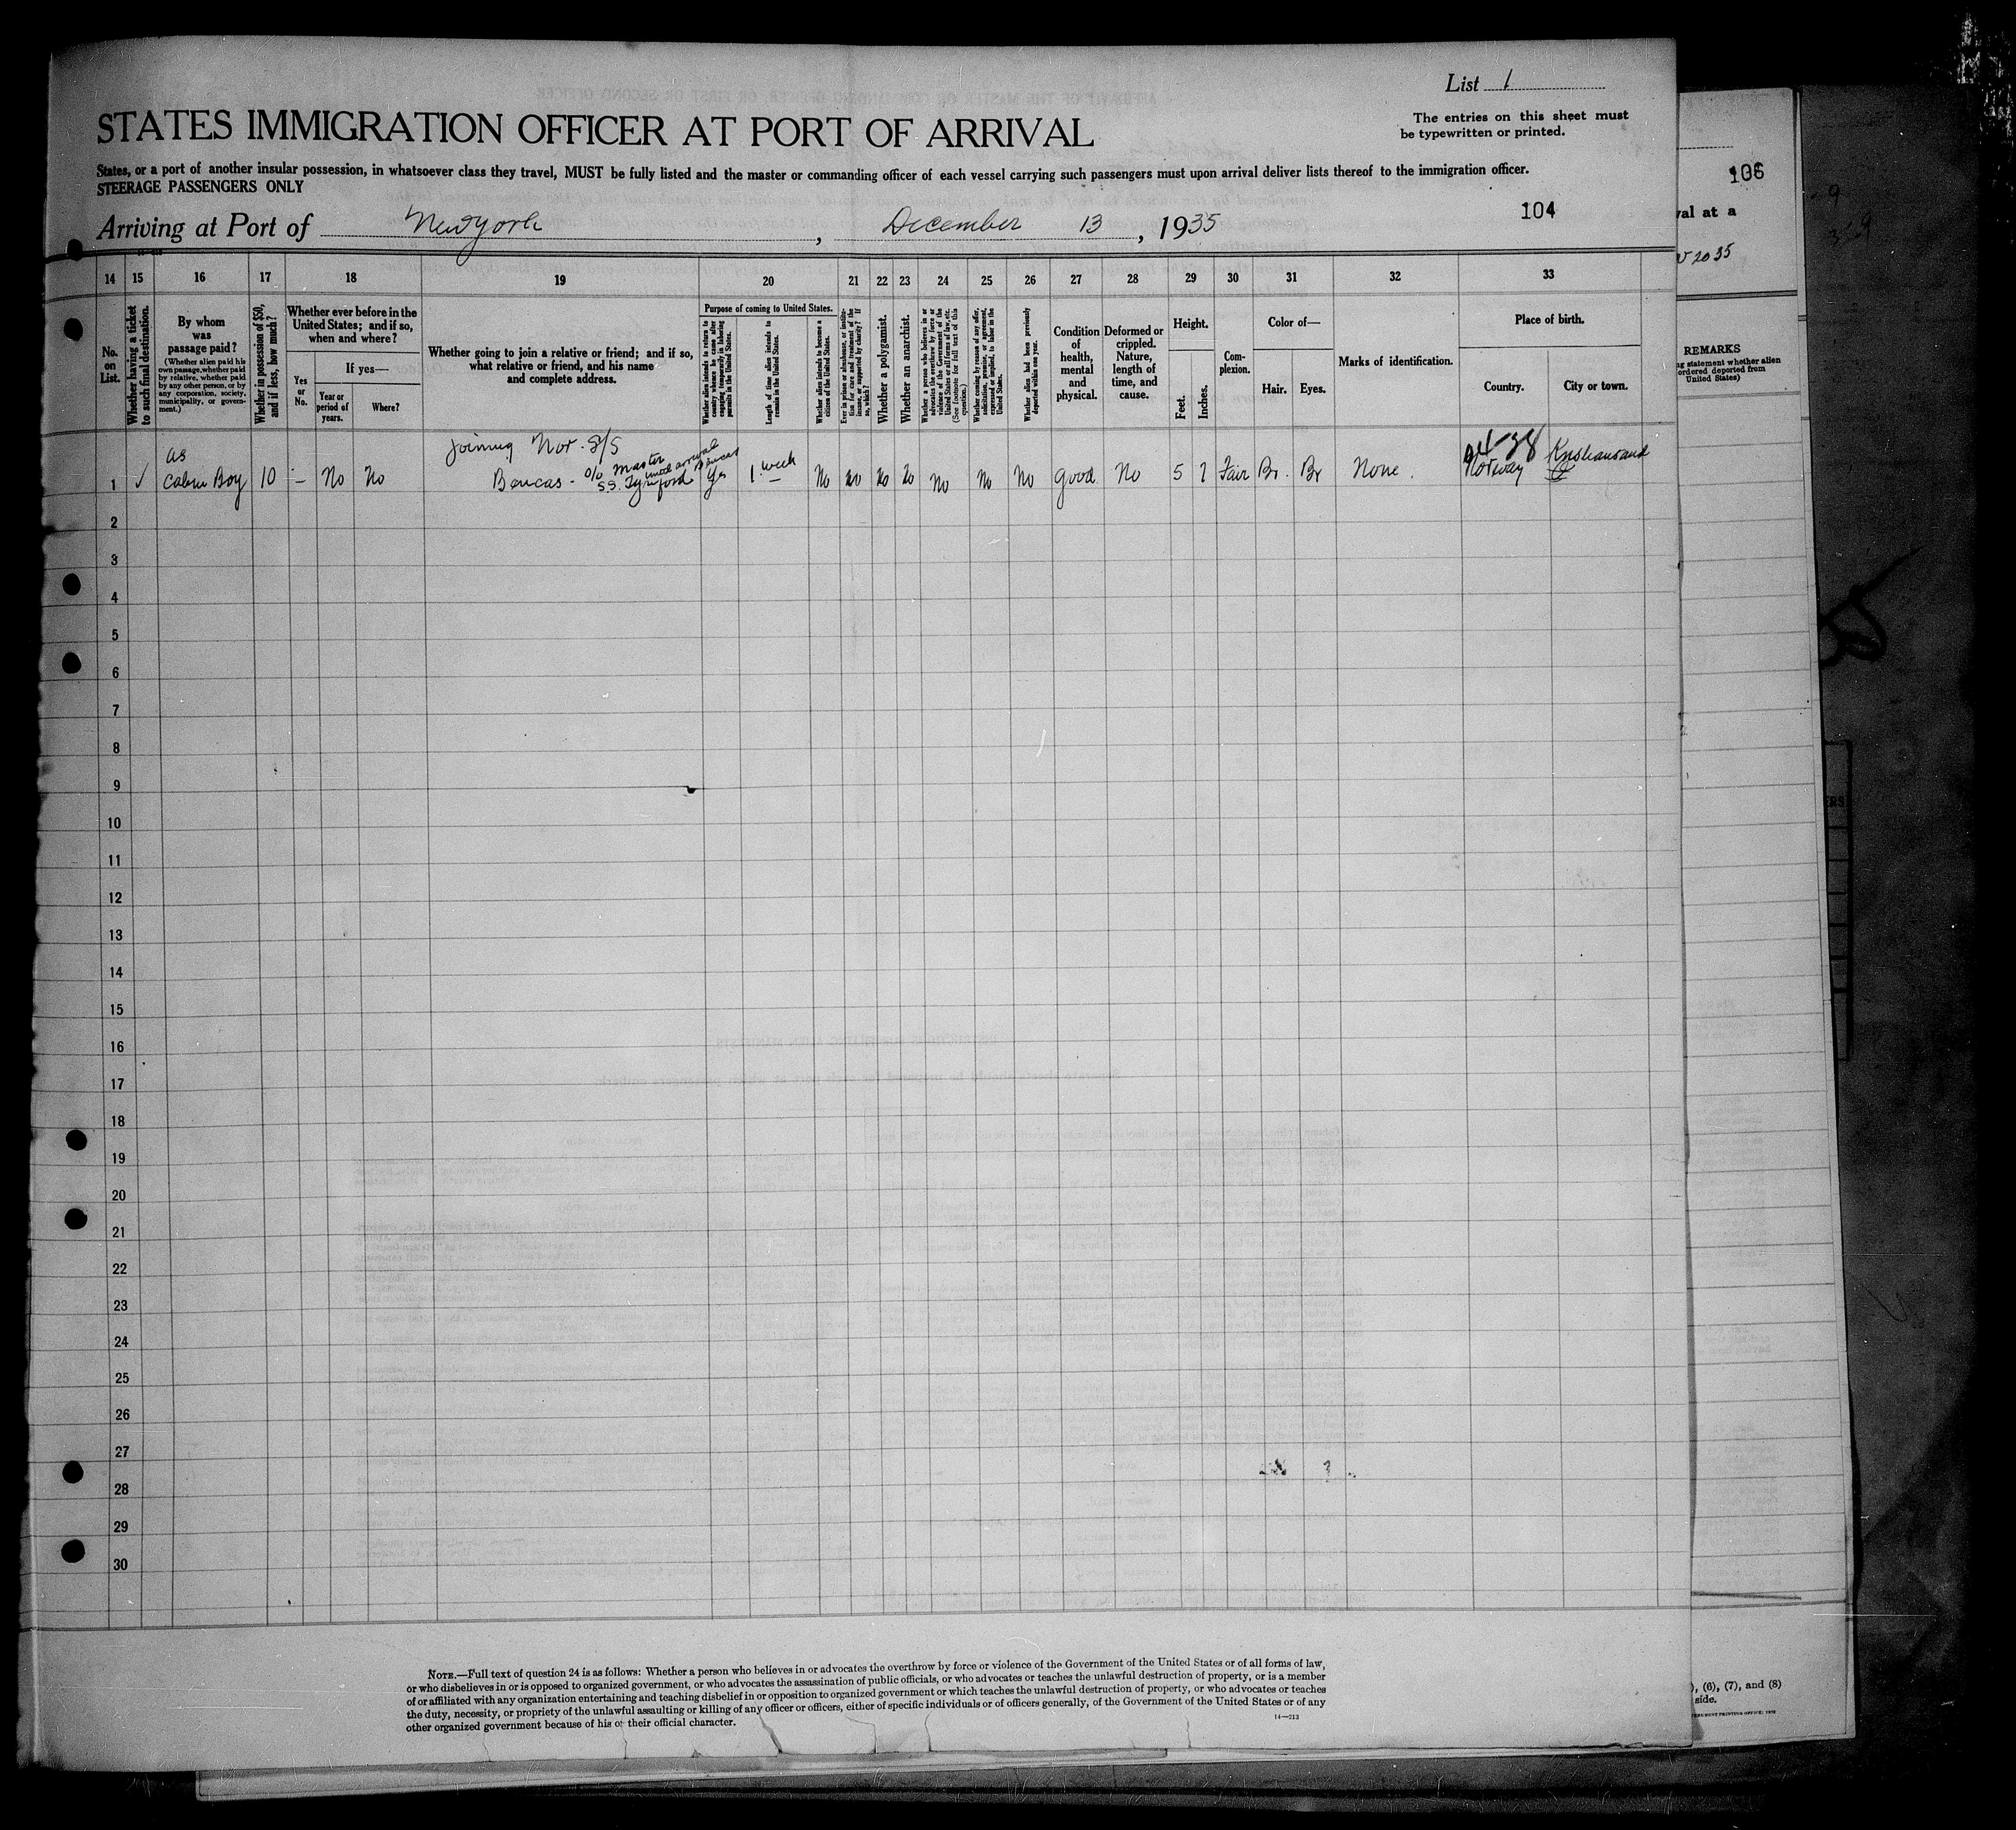 List 1
STATES IMMIGRATION OFFICER AT PORT OF ARRIVAL
The entries on this sheet must
be typewritten or printed.
States, or a port of another insular possession, in whatsoever class they travel, MUST be fully listed and the master or commanding officer of each vessel carrying such passengers must upon arrival deliver lists thereof to the immigration officer.
STEERAGE PASSENGERS ONLY
Arriving at Port of New York, December 13, 1935
104
106
val at a
14 15 16 17 18 19 20 21 22 23 24 25 26 27 28 29 30 31 32 33
No. on List.
Whether having a ticket to such final destination.
By whom was passage paid?
(Whether alien paid his own passage, whether paid by relative, whether paid by any other person, or by any corporation, society, municipality, or government.)
Whether in possession of $50, and if less, how much?
Whether ever before in the United States; and if so, when and where?
Yes or No.
If yes—
Year or period of years.
Where?
Whether going to join a relative or friend; and if so, what relative or friend, and his name and complete address.
Purpose of coming to United States.
Whether alien intends to return to country whence he came after engaging temporarily in laboring pursuits in the United States.
Length of time alien intends to remain in the United States.
Whether alien intends to become a citizen of the United States.
Ever in prison or almshouse, or institution for care and treatment of the insane, or supported by charity? If so, which?
Whether a polygamist.
Whether an anarchist.
Whether a person who believes in or advocates the overthrow by force or violence of the Government of the United States or all forms of law, etc. (See footnote for full text of this question.)
Whether coming by reason of any offer, solicitation, promise, or agreement, expressed or implied, to labor in the United States.
Whether alien had been previously deported within one year.
Condition of health, mental and physical.
Deformed or crippled. Nature, length of time, and cause.
Height.
Feet.
Inches.
Complexion.
Color of—
Hair.
Eyes.
Marks of identification.
Place of birth.
Country.
City or town.
REMARKS
ng statement whether alien
ordered deported from
United States)
as
joining Nor. S/S
1 ✓ Cabin Boy 10 – No No Bencas - c/o Master S.S. until arrival Bencas Yes 1 week No No No No No No No good No 5 7 Fair Br. Br None. Norway Kristiansand
2
3
4
5
6
7
8
9
10
11
12
13
14
15
16
17
18
19
20
21
22
23
24
25
26
27
28
29
30
NOTE.—Full text of question 24 is as follows: Whether a person who believes in or advocates the overthrow by force or violence of the Government of the United States or of all forms of law,
or who disbelieves in or is opposed to organized government, or who advocates the assassination of public officials, or who advocates or teaches the unlawful destruction of property, or is a member
of or affiliated with any organization entertaining and teaching disbelief in or opposition to organized government or which teaches the unlawful destruction of property, or who advocates or teaches
the duty, necessity, or propriety of the unlawful assaulting or killing of any officer or officers, either of specific individuals or of officers generally, of the Government of the United States or of any
other organized government because of his or their official character.
14—213
), (6), (7), and (8)
side.